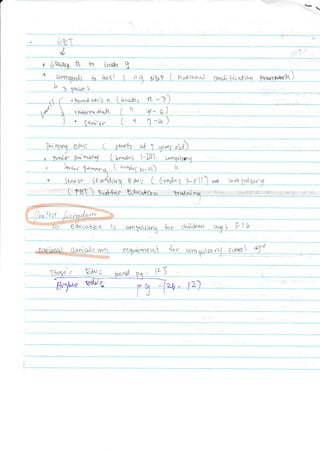 GET
• Grades R to Grade 9
• corresponds to level 1 ng NQF (National Qualification Framework)
3 phases
• Foundation (Grades R-3)
• Intermediate ( " 4-6)
• Senior ( " 7-9)
Primary Educ (starts at 5 years old)
• Junior primary (Grades I-III) compulsory
• Senior Primary (Grades "
• Junior Secondary Educ (Grades compulsory
(FET) Further Education training
United Kingdom
Education is compulsory for children ages 5-16
national curriculum requirement for compulsory school age
Basic Educ pg. 123
Higher educ pg. 126-127